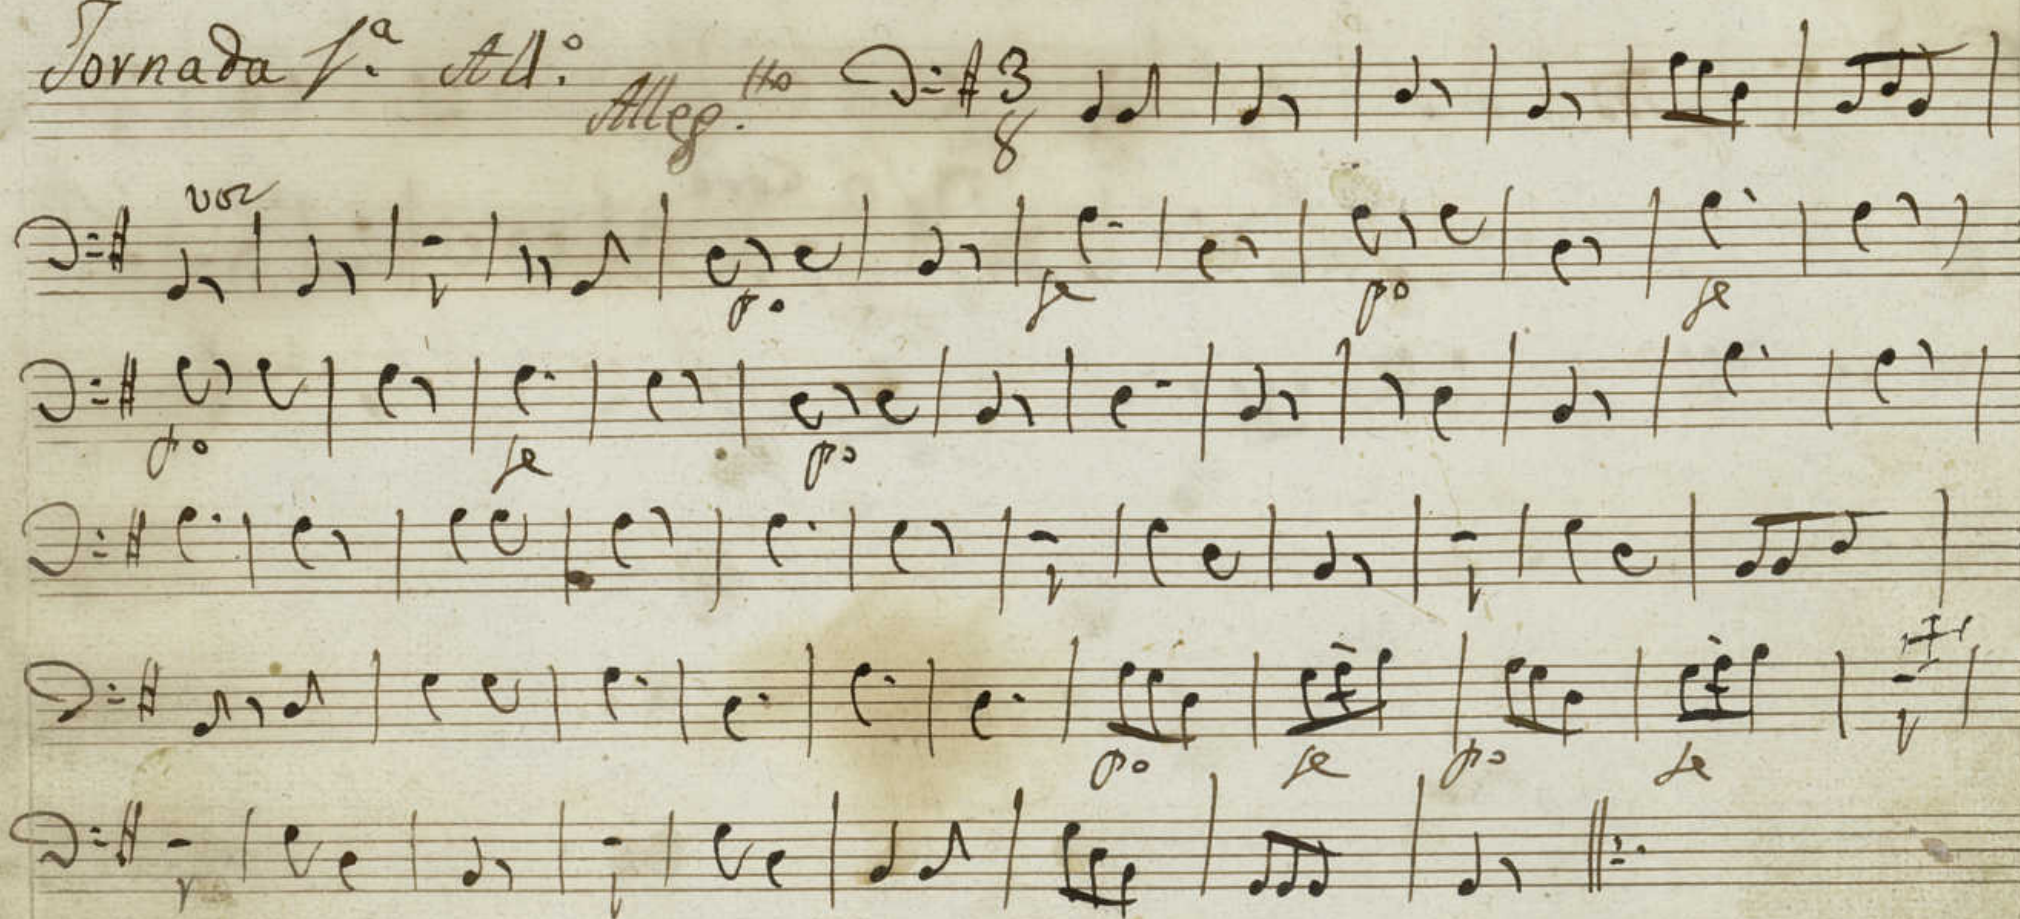 Jornada 1.ª All.º
Alleg.tto 3
8
voz
p.o fe po fe
po fe po
po fe po fe